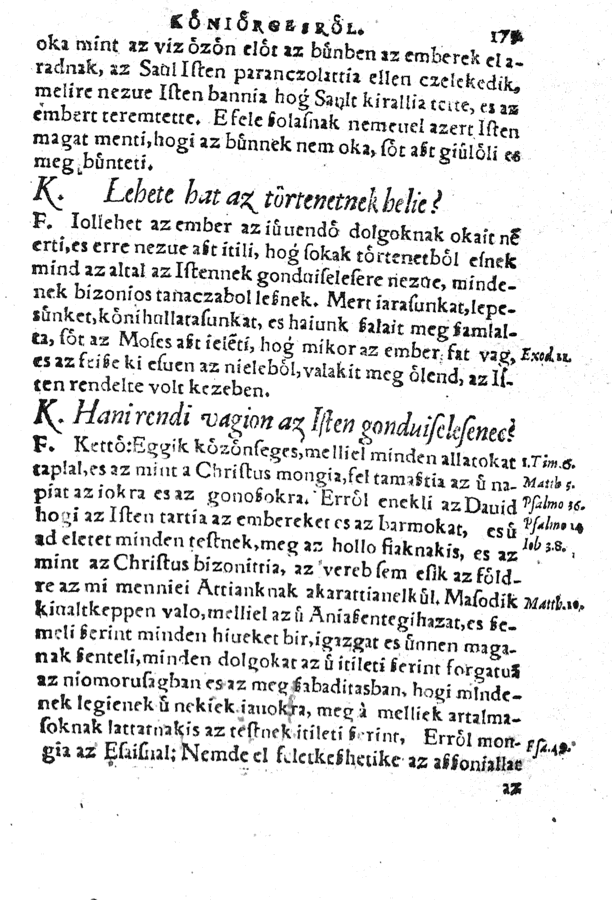 KŐNIÖRGESRŐL. 179
oka mint az viz ȯzȯn elȯt az bu̇nben az emberek el a-
radnak, az Saul Iſten paranczolattia ellen czelekedik,
melire nezue Iſten bannia hogẏ Sault kirallia tette, es az
embert teremtette. E fele ßolaſnak nemeuel azert Iſten
magat menti, hogi az bu̇nnek nem oka, ſȯt aßt giu̇lȯli es
meg bu̇nteti.
K. Lehete hat az tȯrtenetnek helie?
F. Iollehet az ember az iȯuendȯ dolgoknak okait nē
erti, es erre nezue aßt itili, hogẏ ſokak tȯrtenetbȯl eſnek
mind az altal az Iſtennek gonduiſeleſere nezue, minde-
nek bizonios tanaczabol leßnek. Mert iaraſunkat, lepe-
ſu̇nket, kȯnihullataſunkat, es haiunk ßalait meg ßamlal-
ta, ſȯt az Moſes aßt ieleti, hogẏ mikor az ember fat vag, Exod. 21.
es az feiße ki eſuen az nielebȯl, valakit meg ȯlend, az Iſ-
ten rendelte volt kezeben.
K. Hani rendi vagion az Iſten gonduiſeleſenec?
F. Kettȯ: Eggik kȯzȯnſeges, melliel minden allatokat 1. Tim. 6.
taplal, es az mint a Chriſtus mongia, fel tamaßtia az u̇ na- Matth 5.
piat az iokra es az gonoßokra. Errȯl enekli az Dauid Pſalmo 36.
hogi az Iſten tartia az embereket es az barmokat, es u̇ Pſalmo
ad eletet minden teſtnek, meg az hollo fiaknakis, es az Iob 38.
mint az Chriſtus bizonittia, az vereb ſem eſik az fȯld-
re az mi menniei Attianknak akarattianelku̇l. Maſodik Matth. 10.
kiualtkeppen valo, melliel az u̇ Aniaßentegihazat, es ße-
meli ßerint minden hiueket bir, igazgat es u̇nnen maga-
nak ßenteli, minden dolgokat az u̇ itileti ßerint forgatuā
az niomoruſagban es az meg ßabaditasban, hogi minde-
nek legienek u̇ nekiek iauokra, meg à melliek artalma-
ſoknak lattatnakis az teſtnek itileti ßerint, Errȯl mon- Eſa. 49.
gia az Eſaiſual; Nemde el feletkeßhetike az aßſoniallat
az